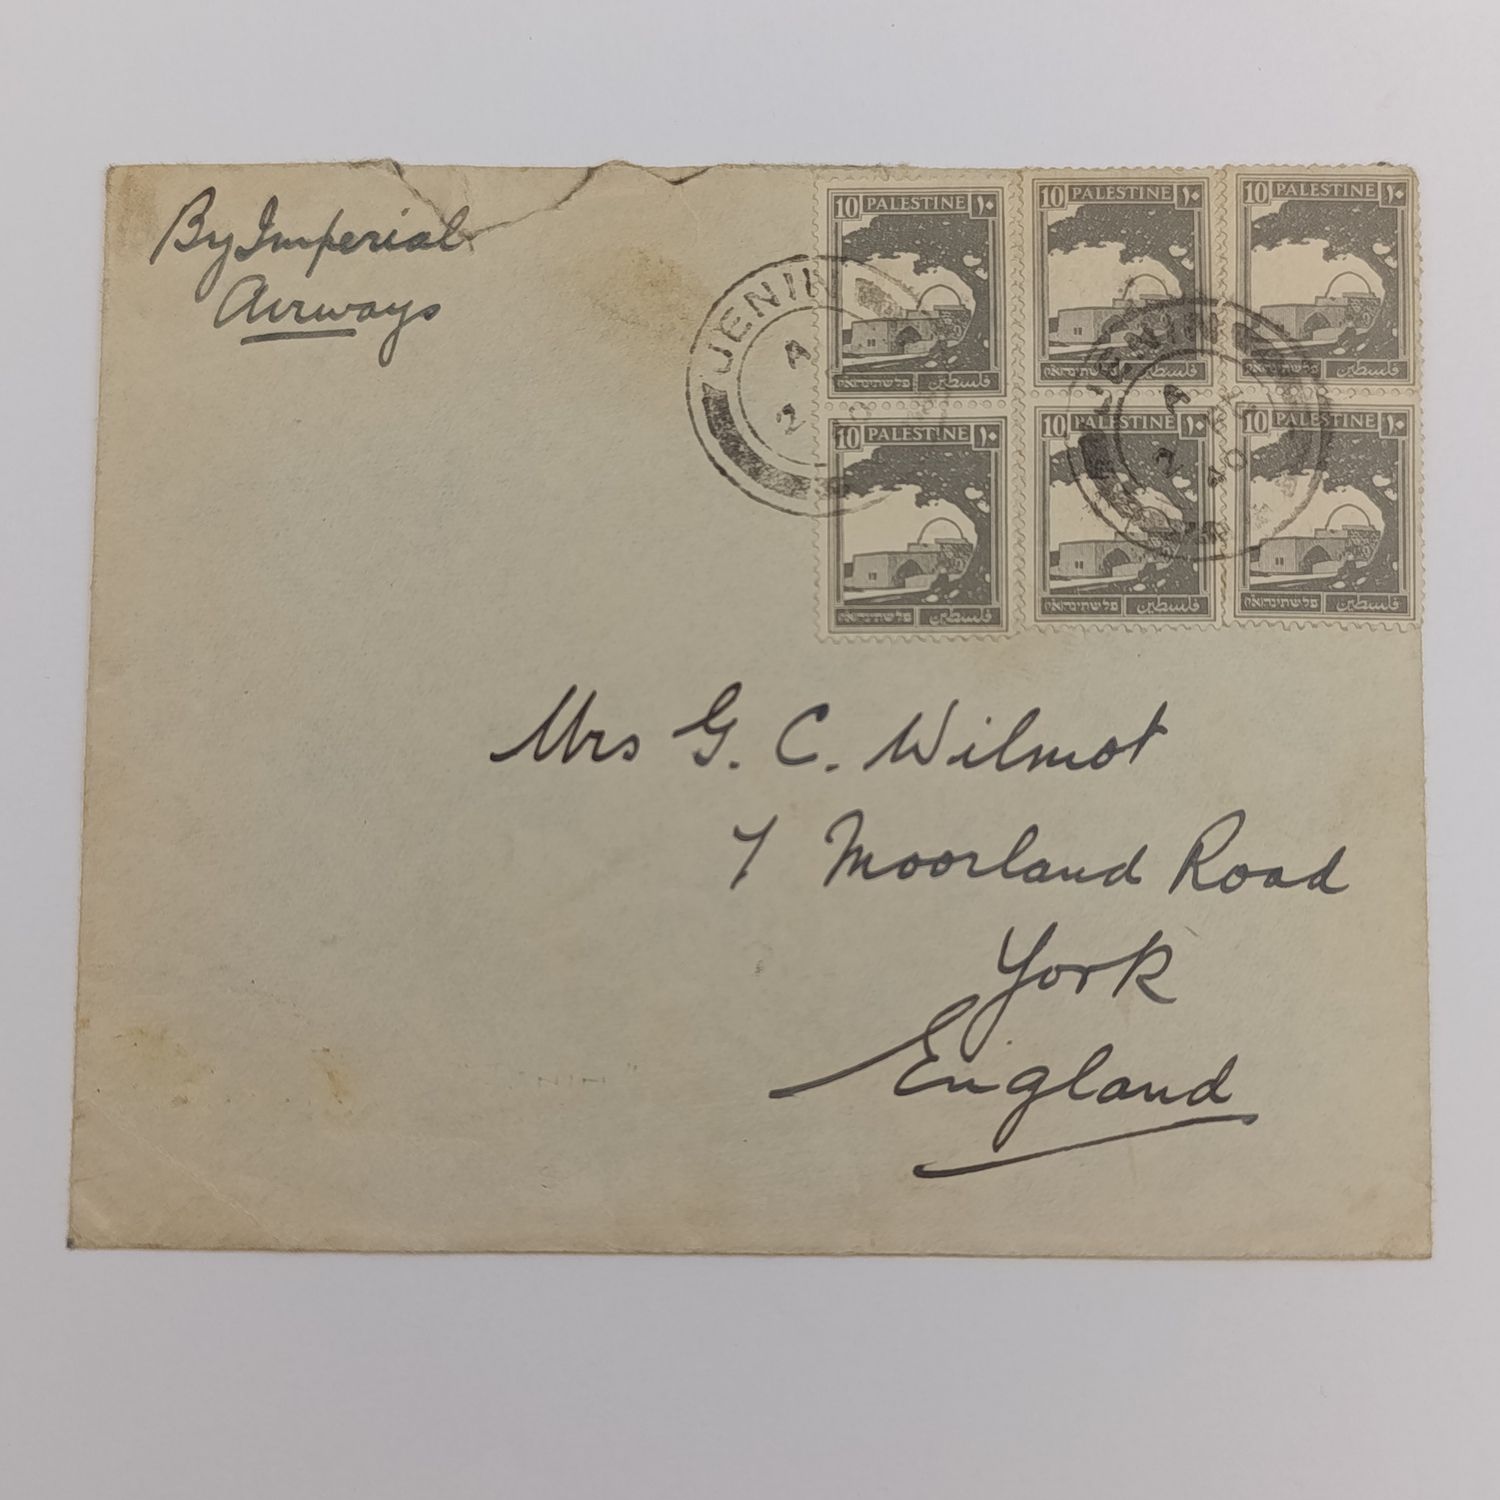 By Imperial
Airways
10 PALESTINE ١٠
10 PALESTINE ١٠
10 PALESTINE ١٠
פלשתינה א״י فلسطين
פלשתינה א״י فلسطين
פלשתינה א״י فلسطين
JENIN
A
2
JENIN
A
2
40
10 PALESTINE ١٠
10 PALESTINE ١٠
10 PALESTINE ١٠
פלשתינה א״י فلسطين
פלשתינה א״י فلسطين
פלשתינה א״י فلسطين
Mrs G. C. Wilmot
7 Moorland Road
York
England